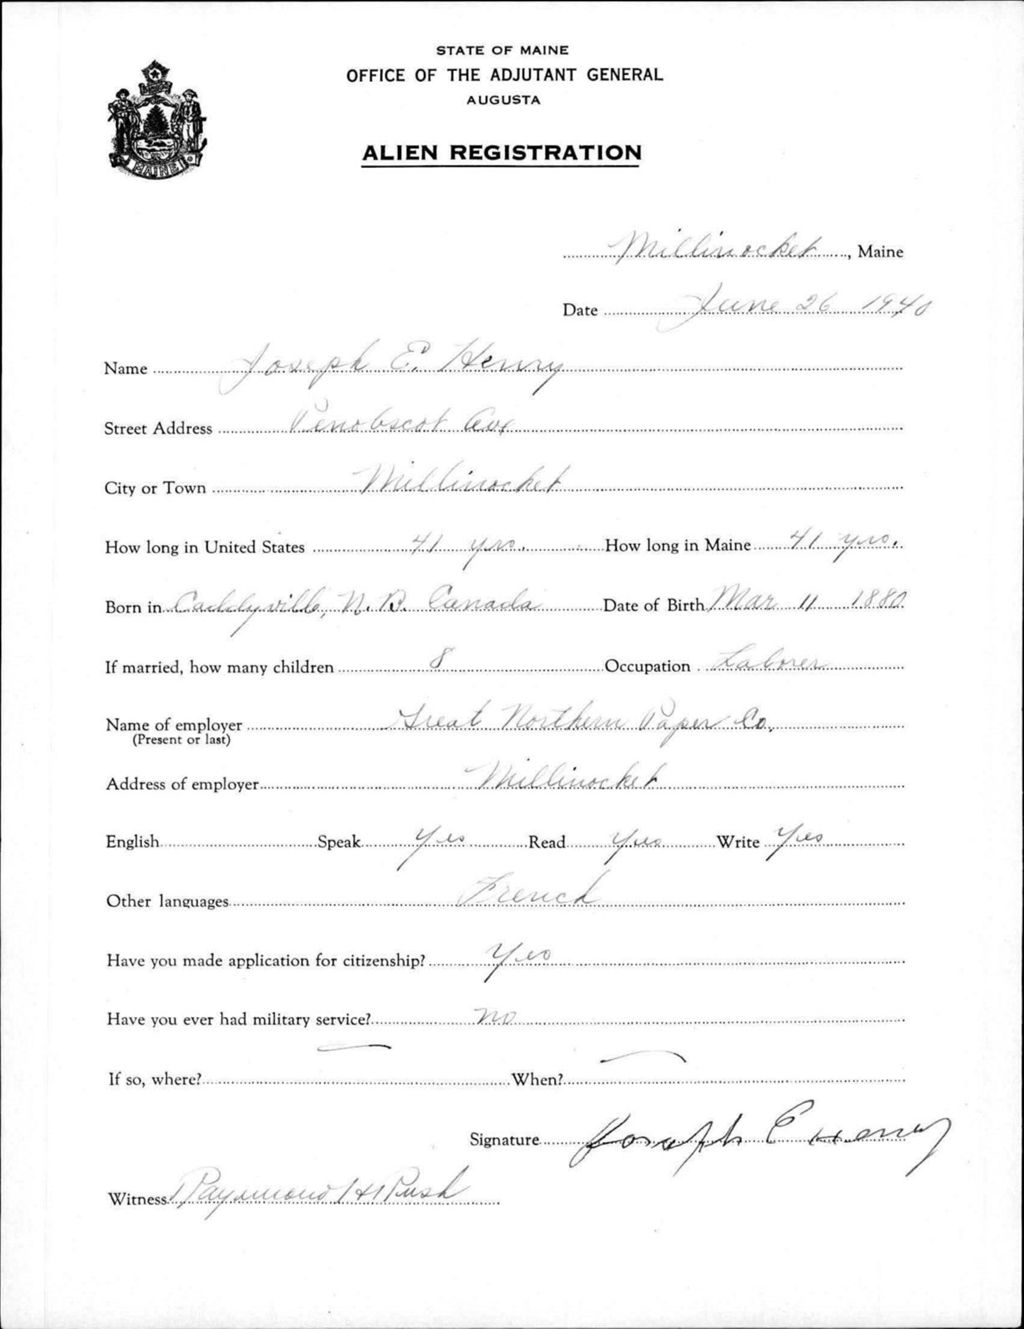 STATE OF MAINE
OFFICE OF THE ADJUTANT GENERAL
AUGUSTA
ALIEN REGISTRATION
MAINE
Millinocket, Maine
Date June 26 1940
Name Joseph E. Henry
Street Address Penobscot Ave
City or Town Millinocket
How long in United States 41 yrs. How long in Maine 41 yrs.
Born in Caddyville, N.B. Canada Date of Birth Mar 11 1880
If married, how many children 8 Occupation Laborer
Name of employer Great Northern Paper Co.
(Present or last)
Address of employer Millinocket
English Speak Yes Read Yes Write Yes
Other languages French
Have you made application for citizenship? Yes
Have you ever had military service? No
If so, where? — When? —
Signature Joseph E Henry
Witness Raymond H Rush